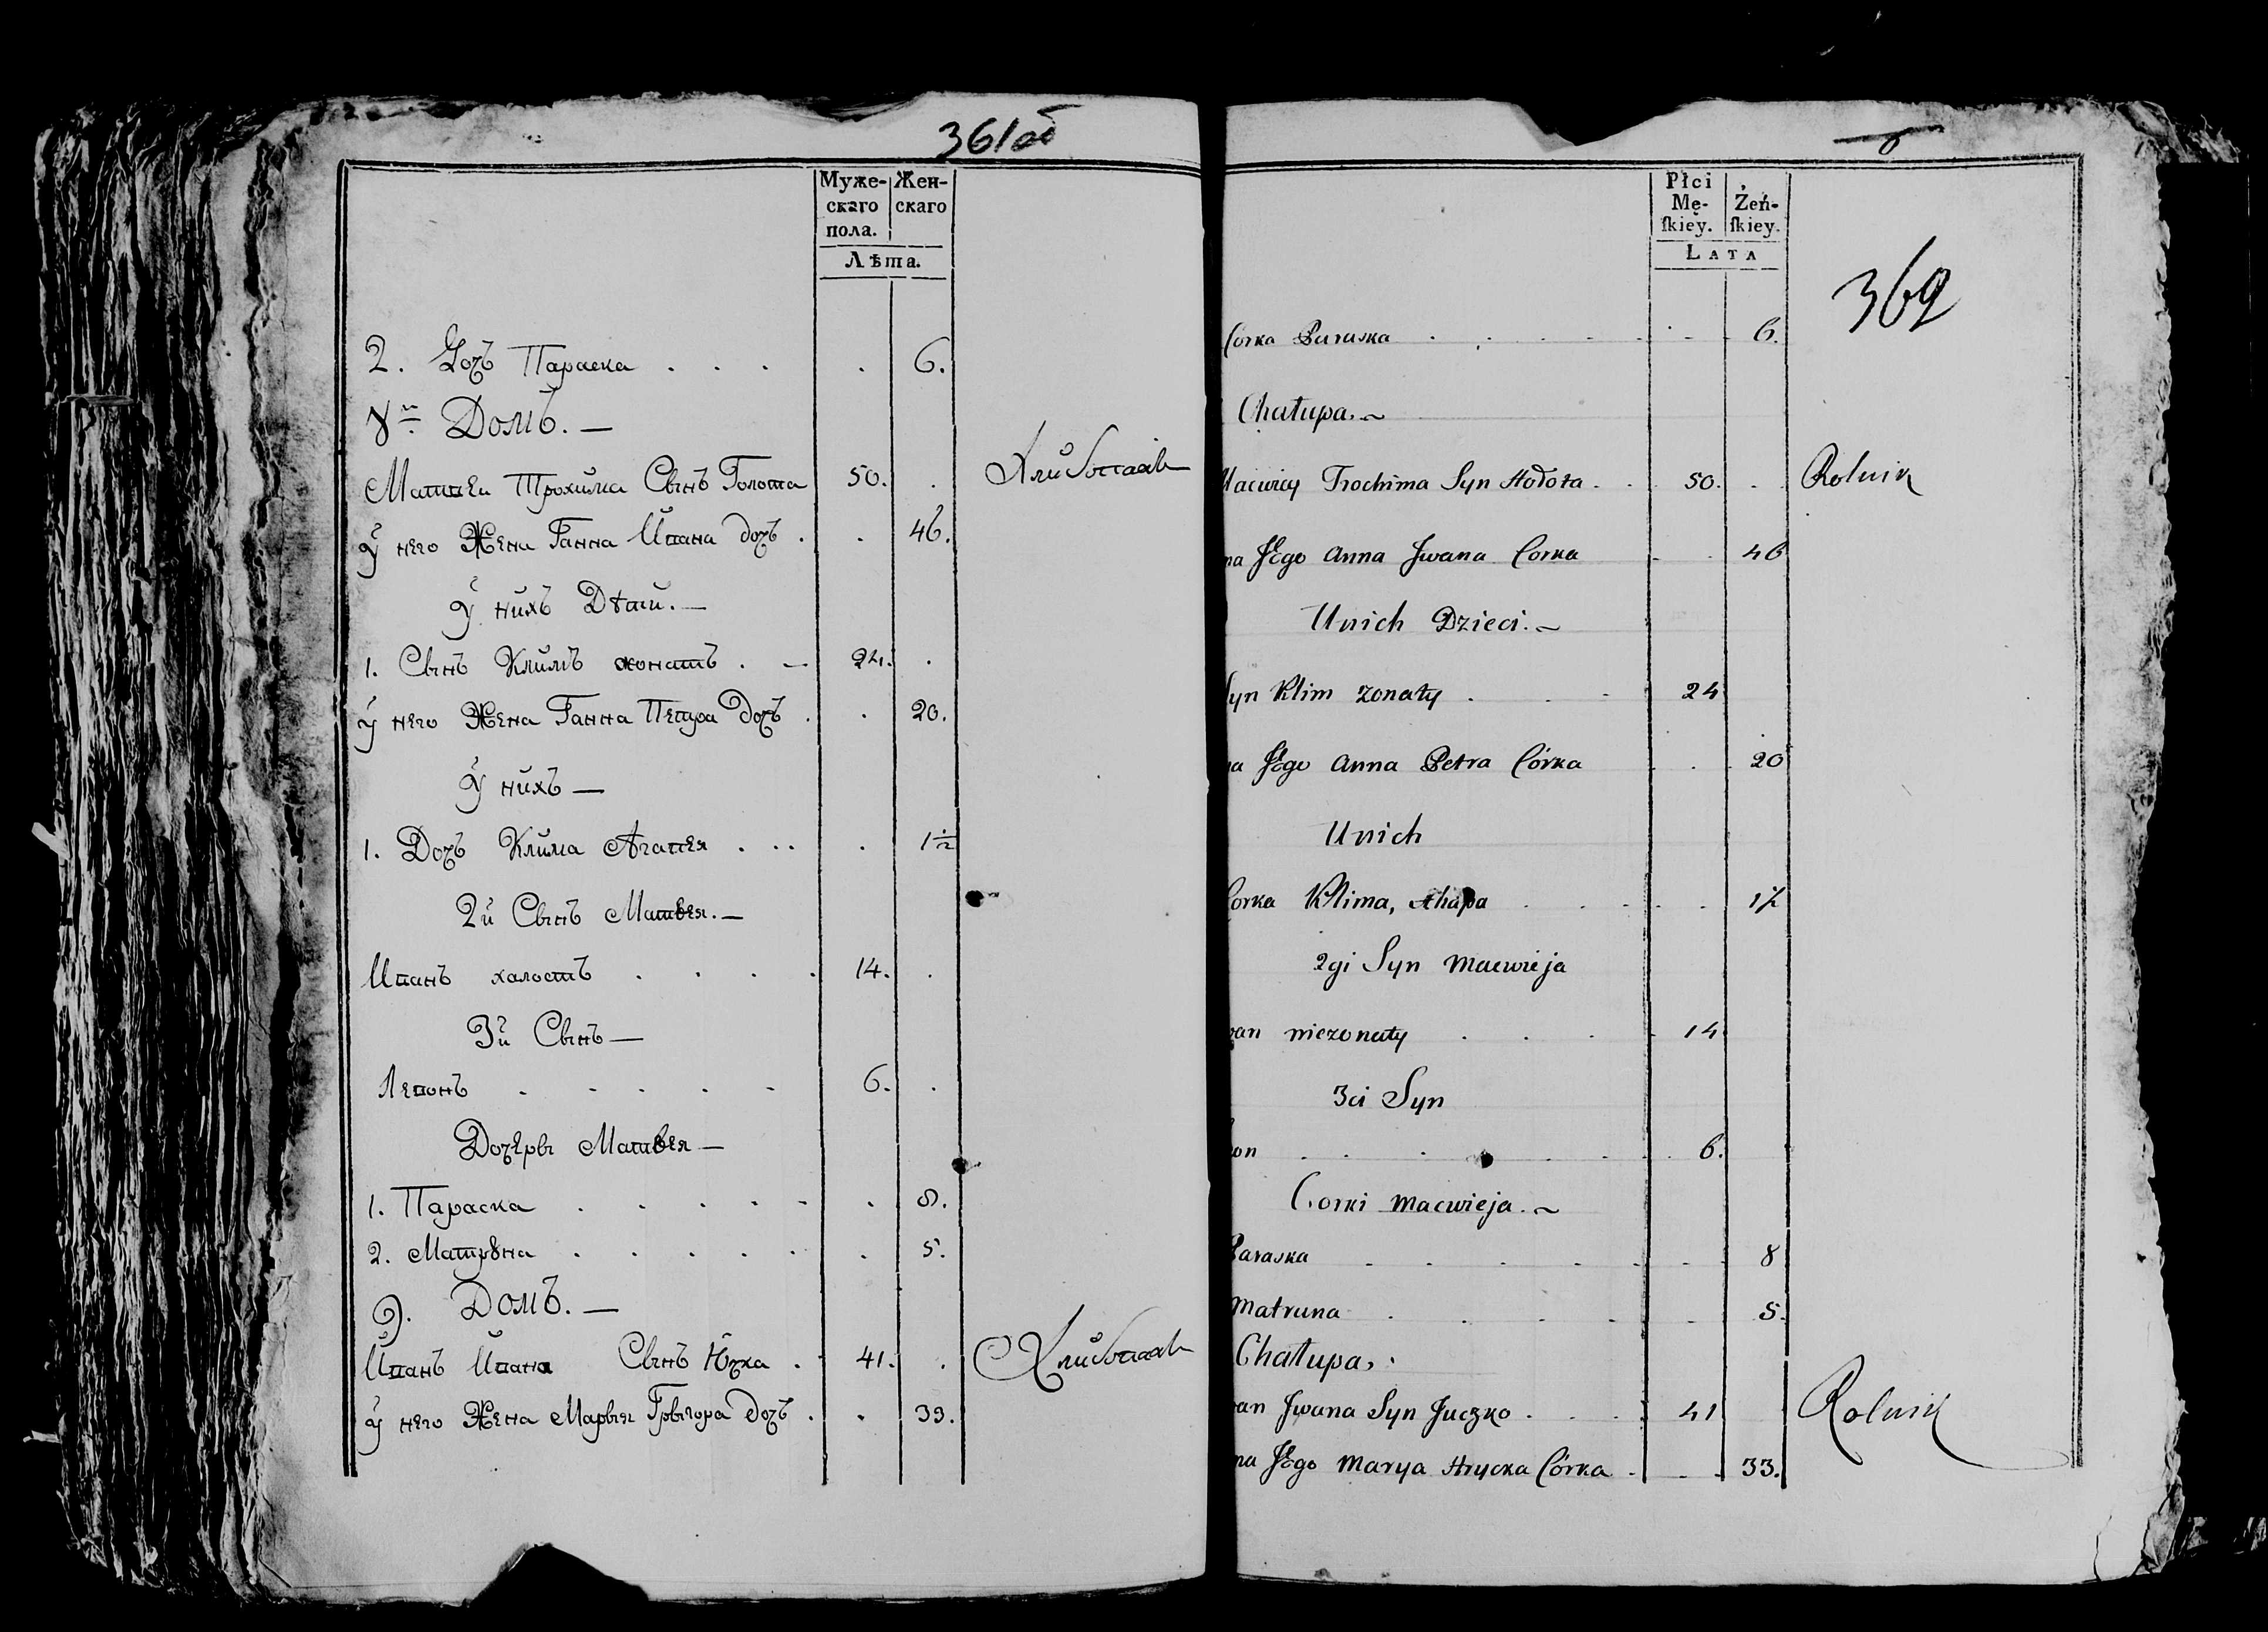 361об
Муже- Жен-
скаго скаго
пола.
Лѣта.
2. Дочъ Параска . . . . 6.
8й Домъ. —
Матвеи Трохима Сынъ Голота 50. . Хлибопашъ
У него Жена Ганна Ивана дочъ . . 46.
У нихъ Дѣти. —
1. Сынъ Климъ жонатъ . — 24. .
У него Жена Ганна Петра Дочъ . . 20.
У нихъ —
1. Дочъ Клима Агапея . . . . 1½
2й Сынъ Матвея. —
Иванъ халостъ . . . . 14. .
3й Сынъ —
Левонъ . - . . - 6. .
Дочеры Матвея —
1. Параска . . . . - . 8.
2. Матрꙋна . . . . . . 5.
9. Домъ. —
Иванъ Ивана Сынъ Ючка . 41. . Хлибопашъ
У него Жена Марыя Грыгора дочъ . . 33.
Płci Żeń-
Mę- ſkiey.
ſkiey.
LATA
362
Córka Paraska . . . . . 6.
Chałupa. ~
Maciwiey Trochima Syn Hołota . . 50. . Rolnik
na Jego Anna Jwana Corka - . 46
Unich Dzieci. ~
Syn Klim zonaty . . . 24
na Jego Anna Petra Córka . . 20
Unich
Corka Klima, Ahapa . . . . . 1½
2gi Syn Macwieja
wan niezonaty . . . 14
3ci Syn
won . . . . . . 6.
Corki Macwieja. ~
Paraska . . . . . . 8
Matruna . . . . . 5.
Chałupa.
wan Jwana Syn Juczko . . . 41 Rolnik
na Jego Marya Hrycka Córka . . . 33.